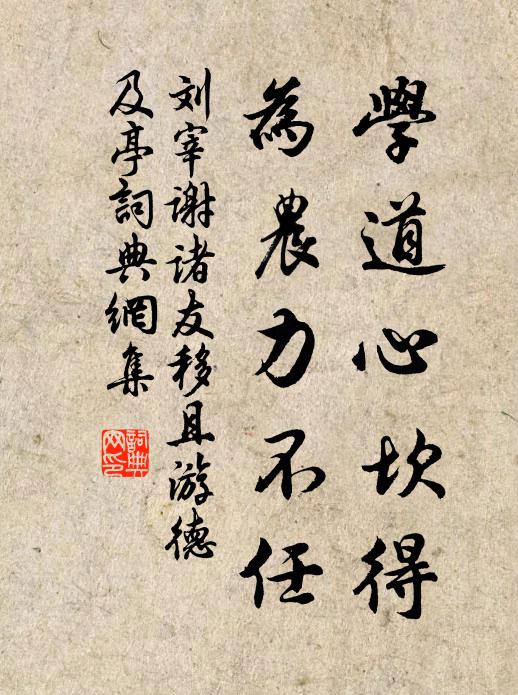 學道心坎得
為農力不任
刘宰谢诸友移且游德
及亭詞典網集
詞典網印